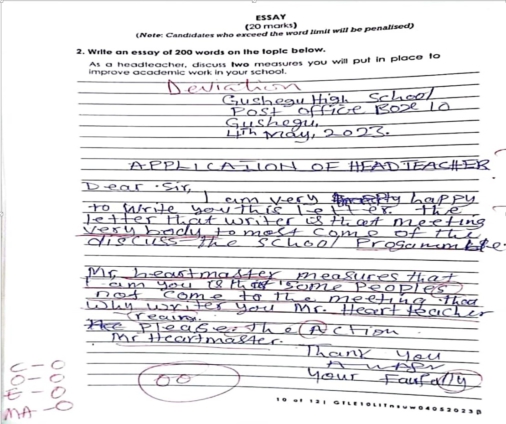 ESSAY
(20 marks)
(Note: Candidates who exceed the word limit will be penalised)
2. Write an essay of 200 words on the topic below.
As a headteacher, discuss two measures you will put in place to
improve academic work in your school.
Deviation
Gushegu High School
Post office Box 10
Gushegu,
4th May, 2023.
APPLICATION OF HEADTEACHER
Dear Sir,
I am very happy
to write you this letter. the
letter that writer is that meeting
very body to most come of the
discuss the school
Mr heartmaster measures that
I am you is that some Peoples
not come to the meeting tha
why writer you Mr. Heart teacher
Please. the Action
Mr Heartmaster.
Thank you
Your
C - 0
O - 0
E - 0
MA - 0
00
10 of 12